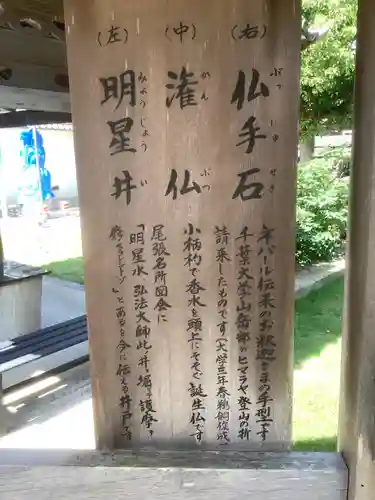 (右)
仏手石
ぶっしゅせき
ネパール伝来のお釈迦さまの手型です
千葉大学山岳部がヒマラヤ登山の折
請来したものです
(中)
灌仏
かんぶつ
小柄杓で香水を頭上にそそぐ誕生仏です
(左)
明星井
みょうじょうい
尾張名所図会に
「明星水 弘法大師此ノ井ヲ掘テ護摩ヲ
修スラレシゾ」とあるを今に伝える井戸です